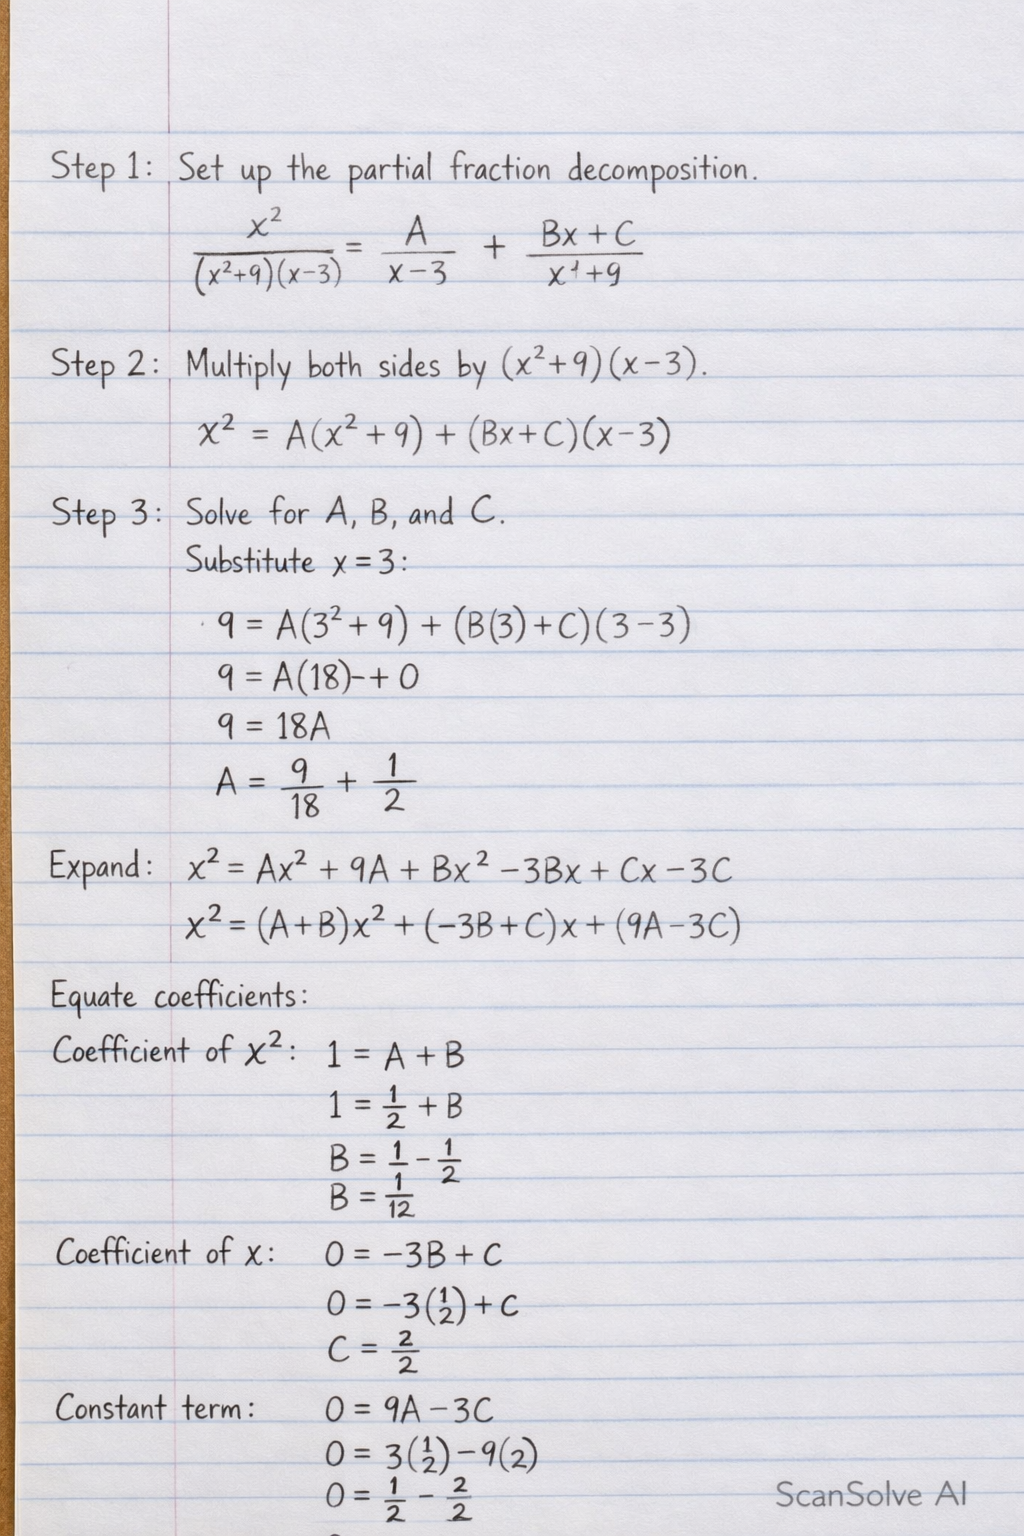 Step 1: Set up the partial fraction decomposition.
x²/((x²+9)(x−3)) = A/(x−3) + (Bx+C)/(x¹+9)
Step 2: Multiply both sides by (x²+9)(x−3).
x² = A(x²+9) + (Bx+C)(x−3)
Step 3: Solve for A, B, and C.
Substitute x=3:
9 = A(3²+9) + (B(3)+C)(3−3)
9 = A(18)-+ 0
9 = 18A
A = 9/18 + 1/2
Expand: x² = Ax² + 9A + Bx² −3Bx + Cx −3C
x² = (A+B)x² + (−3B+C)x + (9A−3C)
Equate coefficients:
Coefficient of x²: 1 = A + B
1 = 1/2 + B
B = 1/1 − 1/2
B = 1/12
Coefficient of x: 0 = −3B + C
0 = −3(1/2) + C
C = 2/2
Constant term: 0 = 9A − 3C
0 = 3(1/2) − 9(2)
0 = 1/2 − 2/2
ScanSolve AI